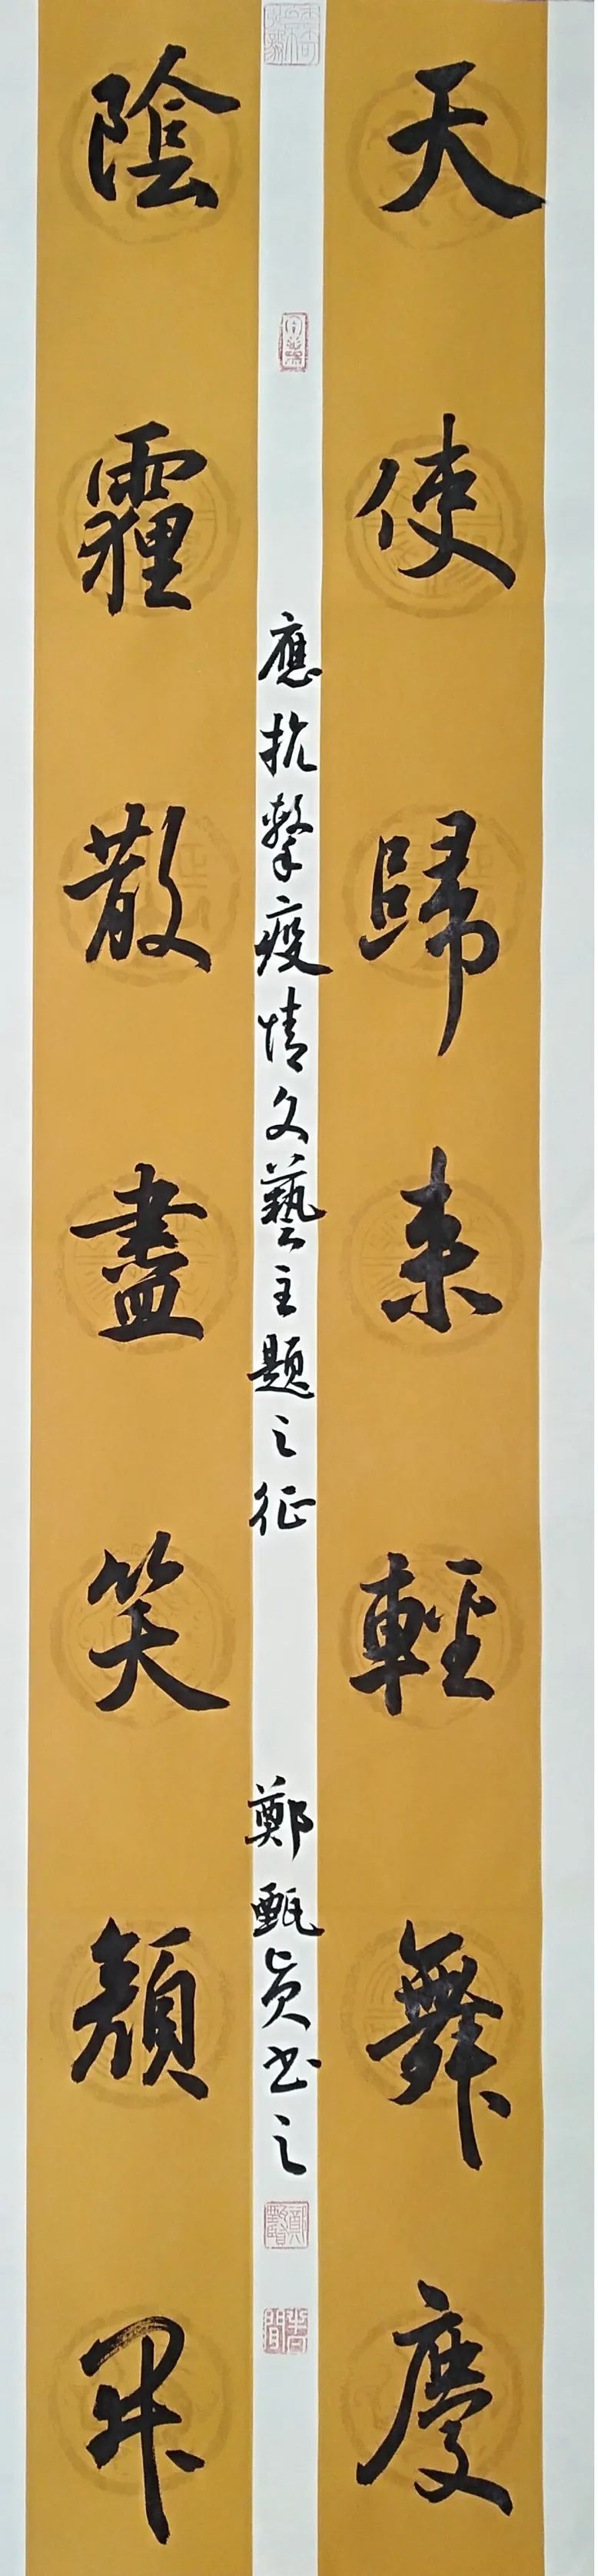 天使歸来輕舞慶
陰霾散盡笑顏開
應抗擊疫情文藝主題之征
鄭甄貞书之